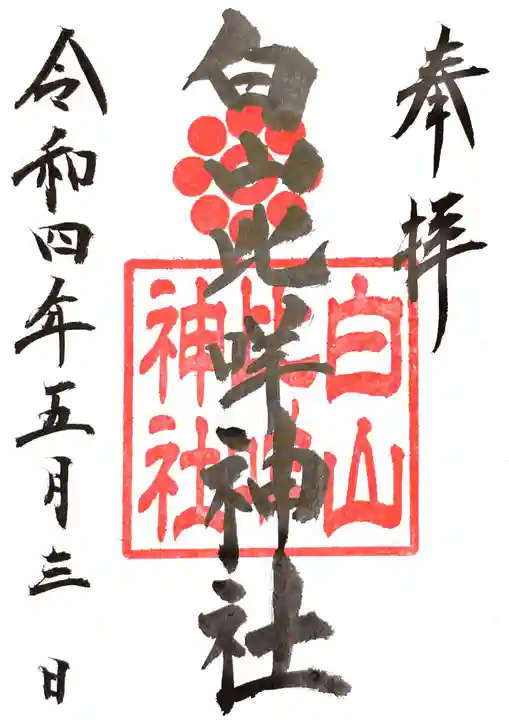 奉拝
白山比咩神社
白山
比咩
神社
令和四年五月三日